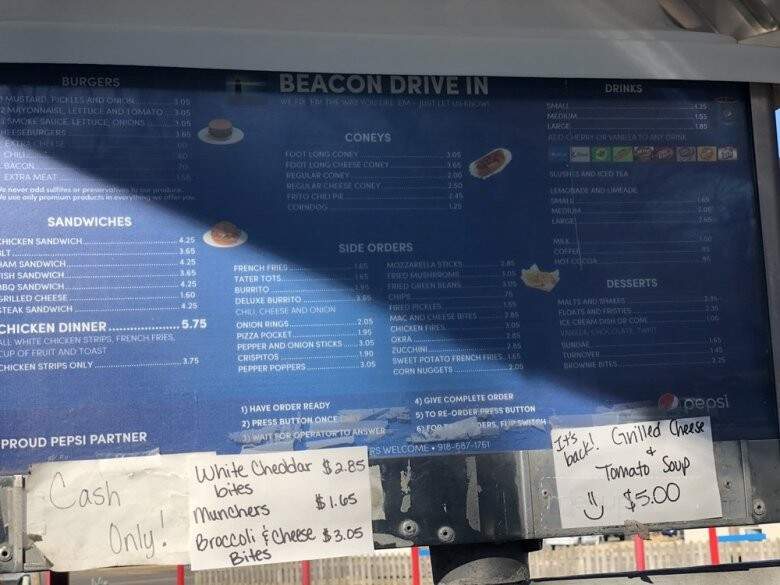 BEACON DRIVE IN
WE FIX 'EM THE WAY YOU LIKE 'EM - JUST LET US KNOW!
BURGERS
MUSTARD, PICKLES AND ONION 3.05
2 MAYONNAISE, LETTUCE AND TOMATO 3.05
SMOKE SAUCE, LETTUCE, ONIONS 3.05
CHEESEBURGERS 3.65
EXTRA CHEESE .60
CHILI
BACON
EXTRA MEAT
We never add sulfites or preservatives to our produce.
We use only premium products in everything we offer you.
SANDWICHES
CHICKEN SANDWICH 4.25
BLT 3.65
HAM SANDWICH 4.25
FISH SANDWICH 3.65
BBQ SANDWICH 4.25
GRILLED CHEESE 1.60
STEAK SANDWICH 4.25
CHICKEN DINNER 5.75
ALL WHITE CHICKEN STRIPS, FRENCH FRIES,
CUP OF FRUIT AND TOAST
CHICKEN STRIPS ONLY 3.75
PROUD PEPSI PARTNER
CONEYS
FOOT LONG CONEY 3.05
FOOT LONG CHEESE CONEY 3.65
REGULAR CONEY 2.00
REGULAR CHEESE CONEY 2.50
FRITO CHILI PIE 2.45
CORNDOG 1.25
SIDE ORDERS
FRENCH FRIES 1.65
TATER TOTS 1.65
BURRITO 1.95
DELUXE BURRITO 3.65
CHILI, CHEESE AND ONION
ONION RINGS 2.05
PIZZA POCKET 1.95
PEPPER AND ONION STICKS 3.05
CRISPITOS 1.90
PEPPER POPPERS 3.05
MOZZARELLA STICKS 2.85
FRIED MUSHROOMS 3.05
FRIED GREEN BEANS 3.05
CHIPS .75
FRIED PICKLES 1.55
MAC AND CHEESE BITES 2.85
CHICKEN FRIES 3.05
OKRA 2.85
ZUCCHINI 2.85
SWEET POTATO FRENCH FRIES 1.65
CORN NUGGETS 2.05
1) HAVE ORDER READY
2) PRESS BUTTON ONCE
3) WAIT FOR OPERATOR TO ANSWER
4) GIVE COMPLETE ORDER
5) TO RE-ORDER PRESS BUTTON
6) FOR TO ORDERS, FLIP SWITCH
ERS WELCOME • 918-687-1761
DRINKS
SMALL 1.35
MEDIUM 1.55
LARGE 1.85
ADD CHERRY OR VANILLA TO ANY DRINK
SLUSHES AND ICED TEA
LEMONADE AND LIMEADE
SMALL 1.65
MEDIUM 2.05
LARGE 2.65
MILK 1.00
COFFEE .95
HOT COCOA .95
DESSERTS
MALTS AND SHAKES
FLOATS AND FROSTIES
ICE CREAM DISH OR CONE
VANILLA, CHOCOLATE, TWIST
SUNDAE 1.65
TURNOVER 1.45
BROWNIE BITES 2.25
pepsi
Cash
Only!
White Cheddar $2.85
bites
Munchers $1.65
Broccoli & Cheese $3.05
Bites
It's back! Grilled Cheese
+
Tomato Soup
$5.00